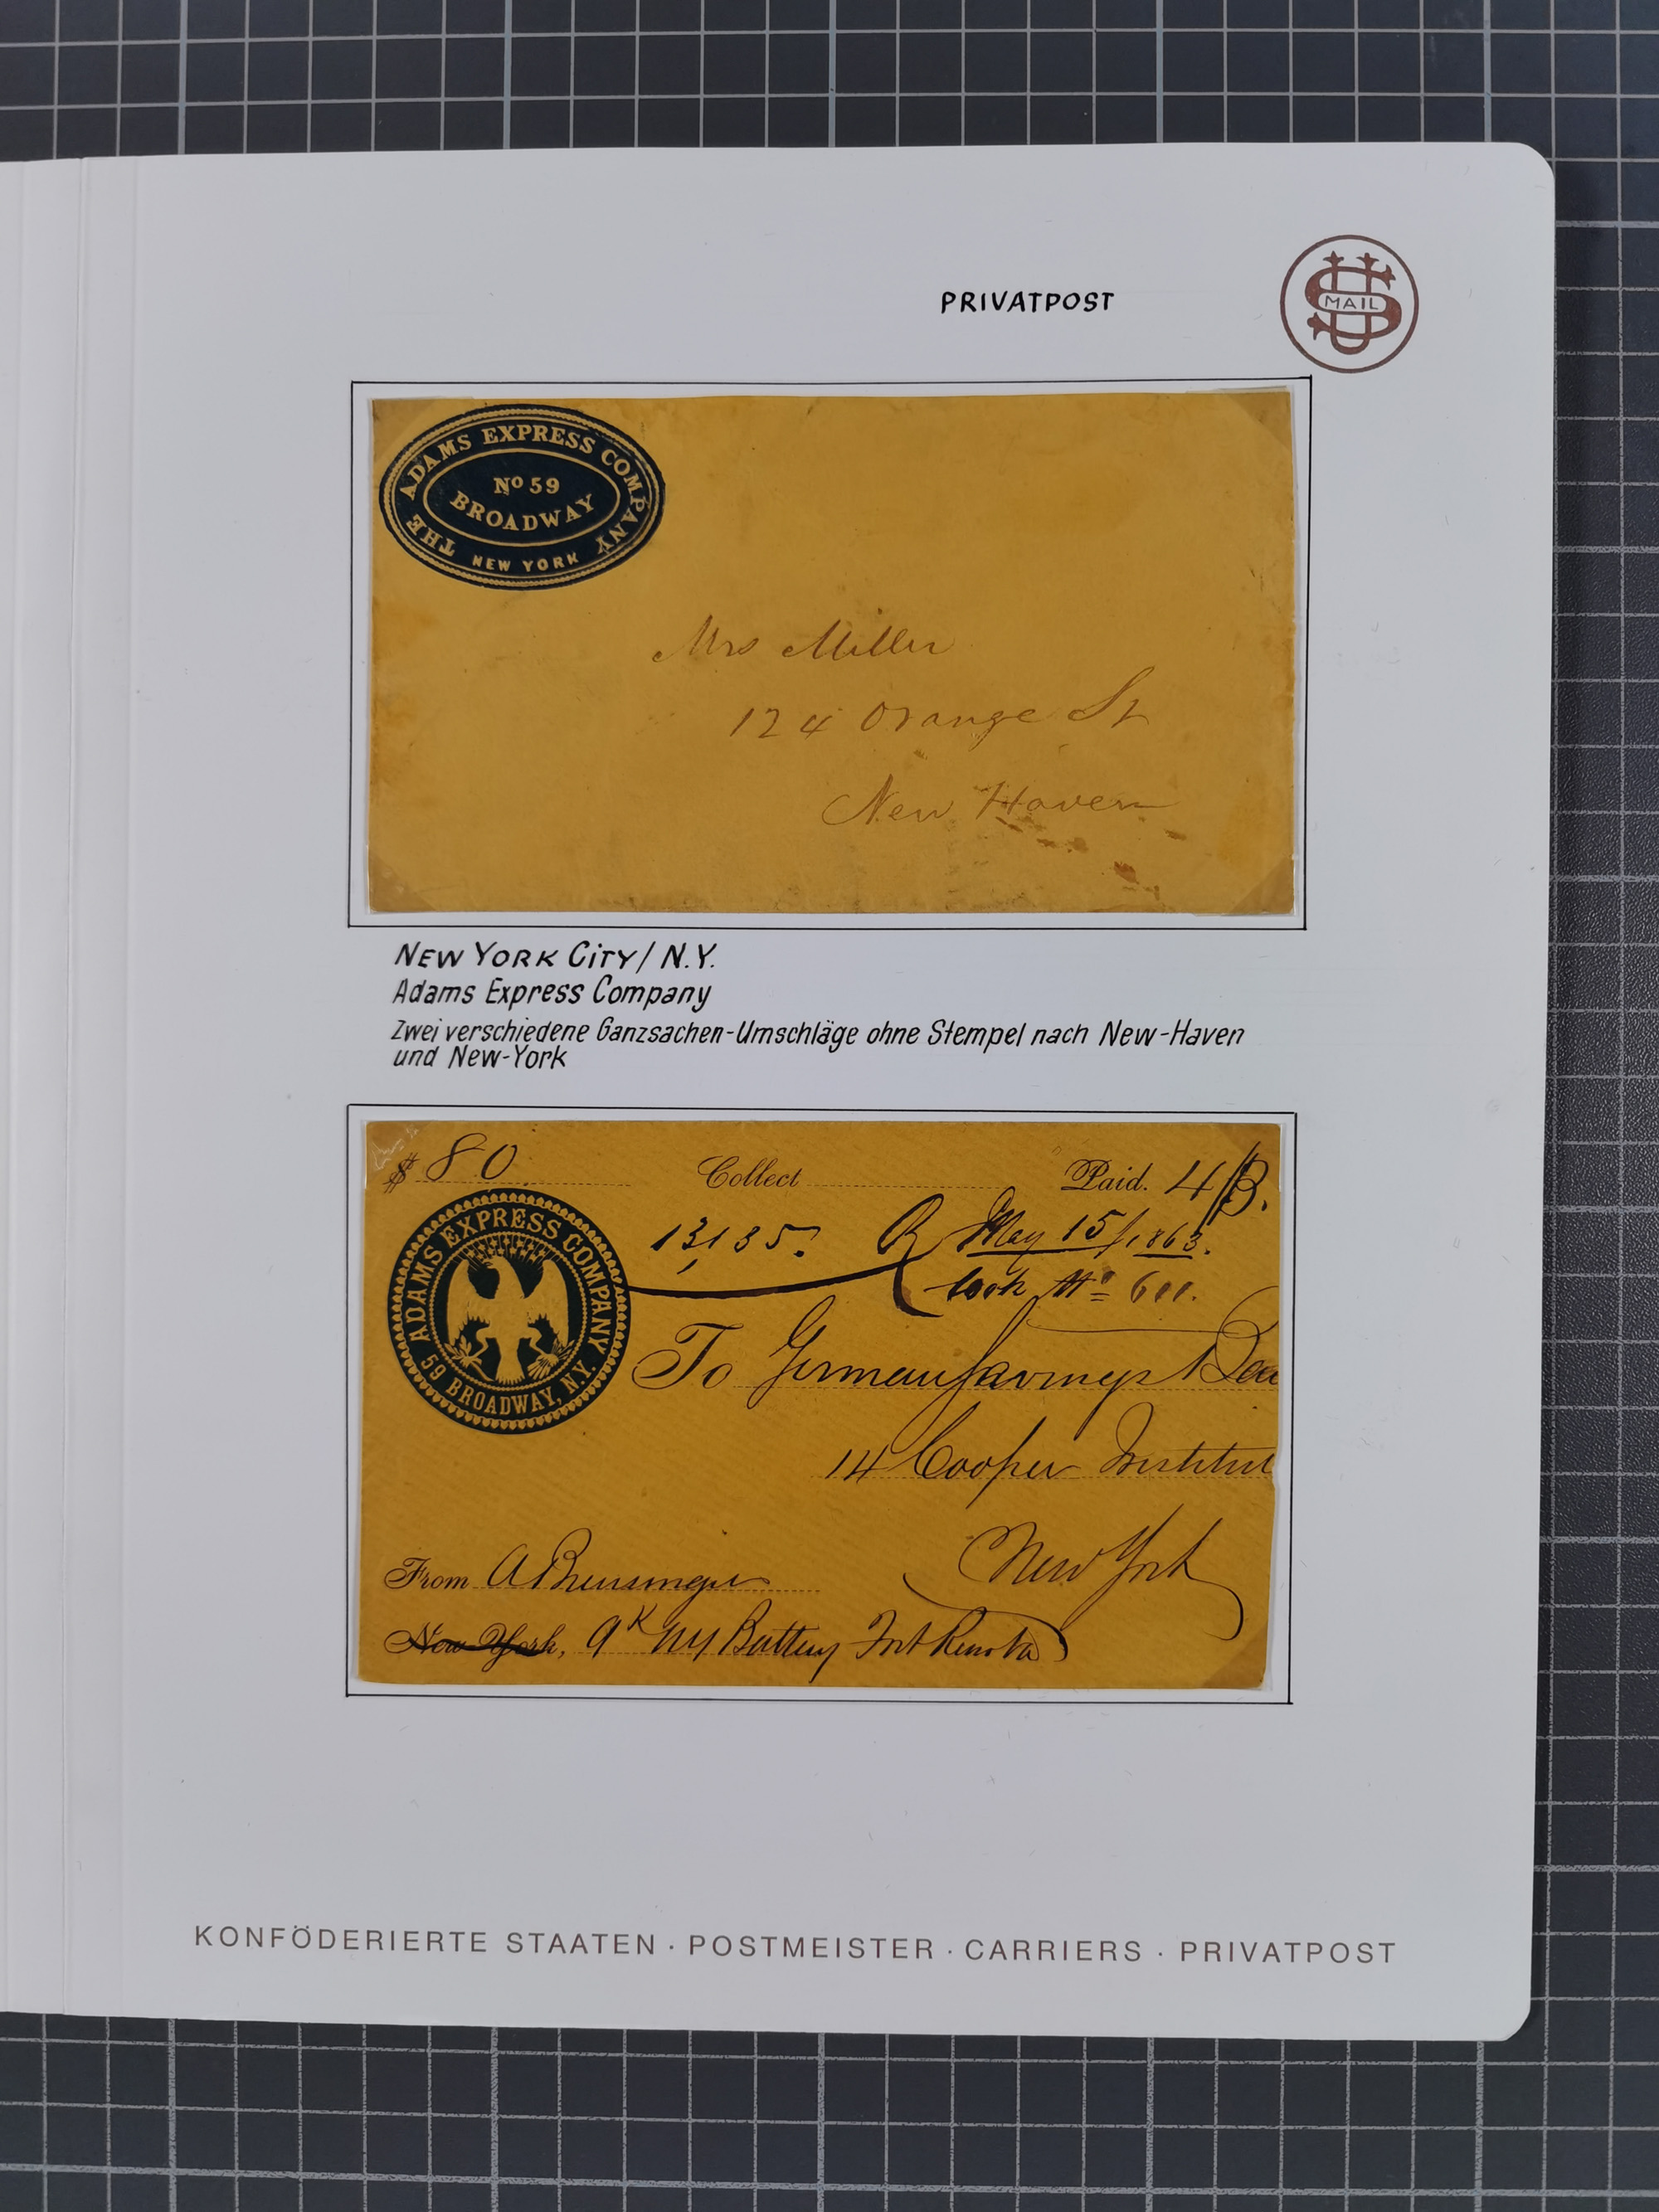 PRIVATPOST
US MAIL
THE ADAMS EXPRESS COMPANY
No 59
BROADWAY
NEW YORK
Mrs Miller
124 Orange St
New Haven
NEW YORK CITY/ N.Y.
Adams Express Company
Zwei verschiedene Ganzsachen-Umschläge ohne Stempel nach New-Haven
und New-York
$ 80 Collect Paid. 4/B.
13,135. R May 15/1863.
book No 611.
ADAMS EXPRESS COMPANY
59 BROADWAY, N.Y.
To German Savings
14 Cooper Institut
New York
From A
New York, 9th NY Battery Fort
KONFÖDERIERTE STAATEN · POSTMEISTER · CARRIERS · PRIVATPOST